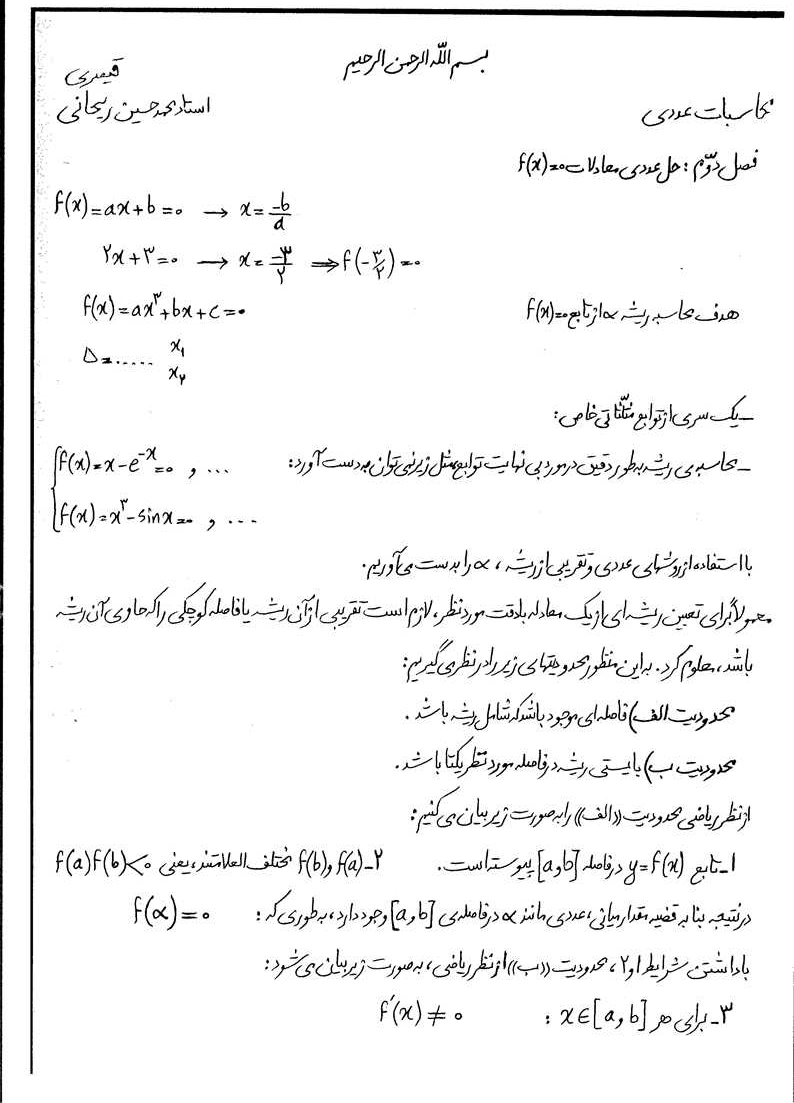 بسم الله الرحمن الرحیم
قیصری
محاسبات عددی
استاد محمد حسین ریحانی
فصل دوّم : حل عددی معادلات f(x)=۰
f(x)=ax+b=۰ → x=-b/a
۲x+۳=۰ → x=-۳/۲ ⇒ f(-۳/۲)=۰
هدف محاسبه ریشه α از تابع f(x)=۰
f(x)=ax^۲+bx+c=۰
Δ=..... x₁
x₂
_ یک سری از توابع مثلّثاتی خاص :
_ محاسبه ی ریشه به طور دقیق در مورد بی نهایت توابع مثل زیر نمی توان به دست آورد :
f(x)=x-e^-x=۰ و ...
f(x)=x^۳-sinx=۰ و ...
با استفاده از روشهای عددی و تقریبی از ریشه ، α را بدست می آوریم .
معمولاً برای تعیین ریشه ای از یک معادله با دقت مورد نظر ، لازم است تقریبی از آن ریشه یا فاصله کوچکی را که حاوی آن ریشه
باشد ، معلوم کرد . به این منظور محدودیتهای زیر را در نظر می گیریم :
محدودیت الف) فاصله ای موجود باشد که شامل ریشه باشد .
محدودیت ب) بایستی ریشه در فاصله مورد نظر یکتا باشد .
از نظر ریاضی محدودیت ((الف)) را به صورت زیر بیان می کنیم :
۱_ تابع y=f(x) در فاصله [a و b] پیوسته است . ۲_ f(a) و f(b) مختلف العلامتند ، یعنی f(a)f(b)<۰
در نتیجه بنا به قضیه مقدار میانی ، عددی مانند α در فاصله ی [a و b] وجود دارد ، به طوری که : f(α)=۰
با داشتن شرایط ۱ و ۲ ، محدودیت ((ب)) از نظر ریاضی ، به صورت زیر بیان می شود :
۳_ برای هر x∈[a و b] : f′(x)≠۰